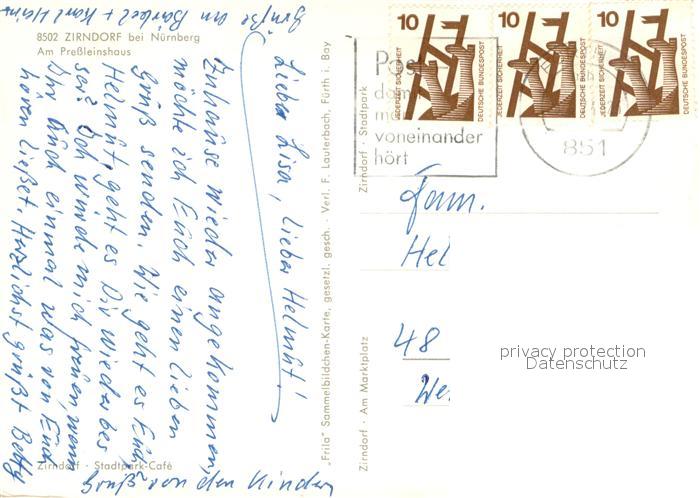 8502 ZIRNDORF bei Nürnberg
Am Preßleinshaus
Zirndorf · Stadtpark-Café
Grüße an Bärbel + Karl Heinz
Liebe Lisa, lieber Helmut!
Zuhause wieder angekommen,
möchte ich Euch einen lieben
Gruß senden. Wie geht es Euch,
Helmut, geht es Dir wieder bes
ser? Ich würde mich freuen, wenn
Ihr Euch einmal was von Euch
hören ließet. Herzlichst grüßt Betty
Grüße von den Kinder
"Frila" Sammelbildchen-Karte, gesetzl. gesch. · Verl. F. Lauterbach, Fürth i. Bay
Zirndorf · Stadtpark
Zirndorf · Am Marktplatz
10
JEDERZEIT SICHERHEIT
DEUTSCHE BUNDESPOST
10
JEDERZEIT SICHERHEIT
DEUTSCHE BUNDESPOST
10
JEDERZEIT SICHERHEIT
DEUTSCHE BUNDESPOST
Pos
dam
ma
voneinander
hört
851
Fam.
Hel
48
We
privacy protection
Datenschutz